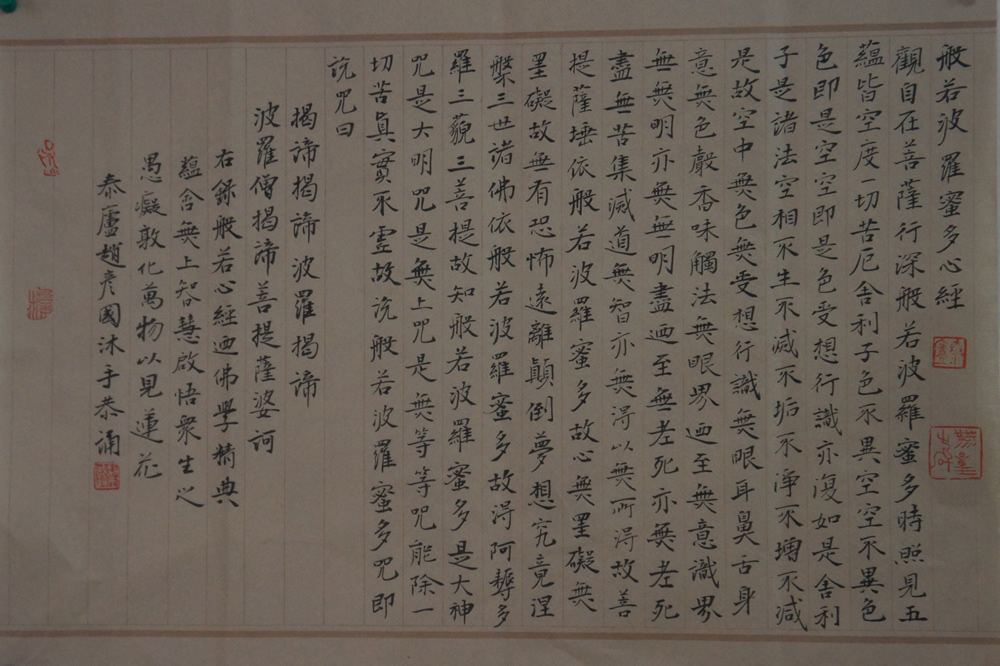 般若波羅蜜多心經
觀自在菩薩行深般若波羅蜜多時照見五
蘊皆空度一切苦厄舍利子色不異空空不異色
色即是空空即是色受想行識亦復如是舍利
子是諸法空相不生不滅不垢不淨不增不減
是故空中無色無受想行識無眼耳鼻舌身
意無色聲香味觸法無眼界迺至無意識界
無無明亦無無明盡迺至無老死亦無老死
盡無苦集滅道無智亦無得以無所得故菩
提薩埵依般若波羅蜜多故心無罣礙無
罣礙故無有恐怖遠離顛倒夢想究竟涅
槃三世諸佛依般若波羅蜜多故得阿耨多
羅三藐三菩提故知般若波羅蜜多是大神
咒是大明咒是無上咒是無等等咒能除一
切苦真實不虛故說般若波羅蜜多咒即
說咒曰
揭諦揭諦波羅揭諦
波羅僧揭諦菩提薩婆訶
右錄般若心經迺佛學精典
蘊含無上智慧啟悟衆生之
愚癡敦化萬物以見蓮花
泰廬趙彥國沐手恭誦